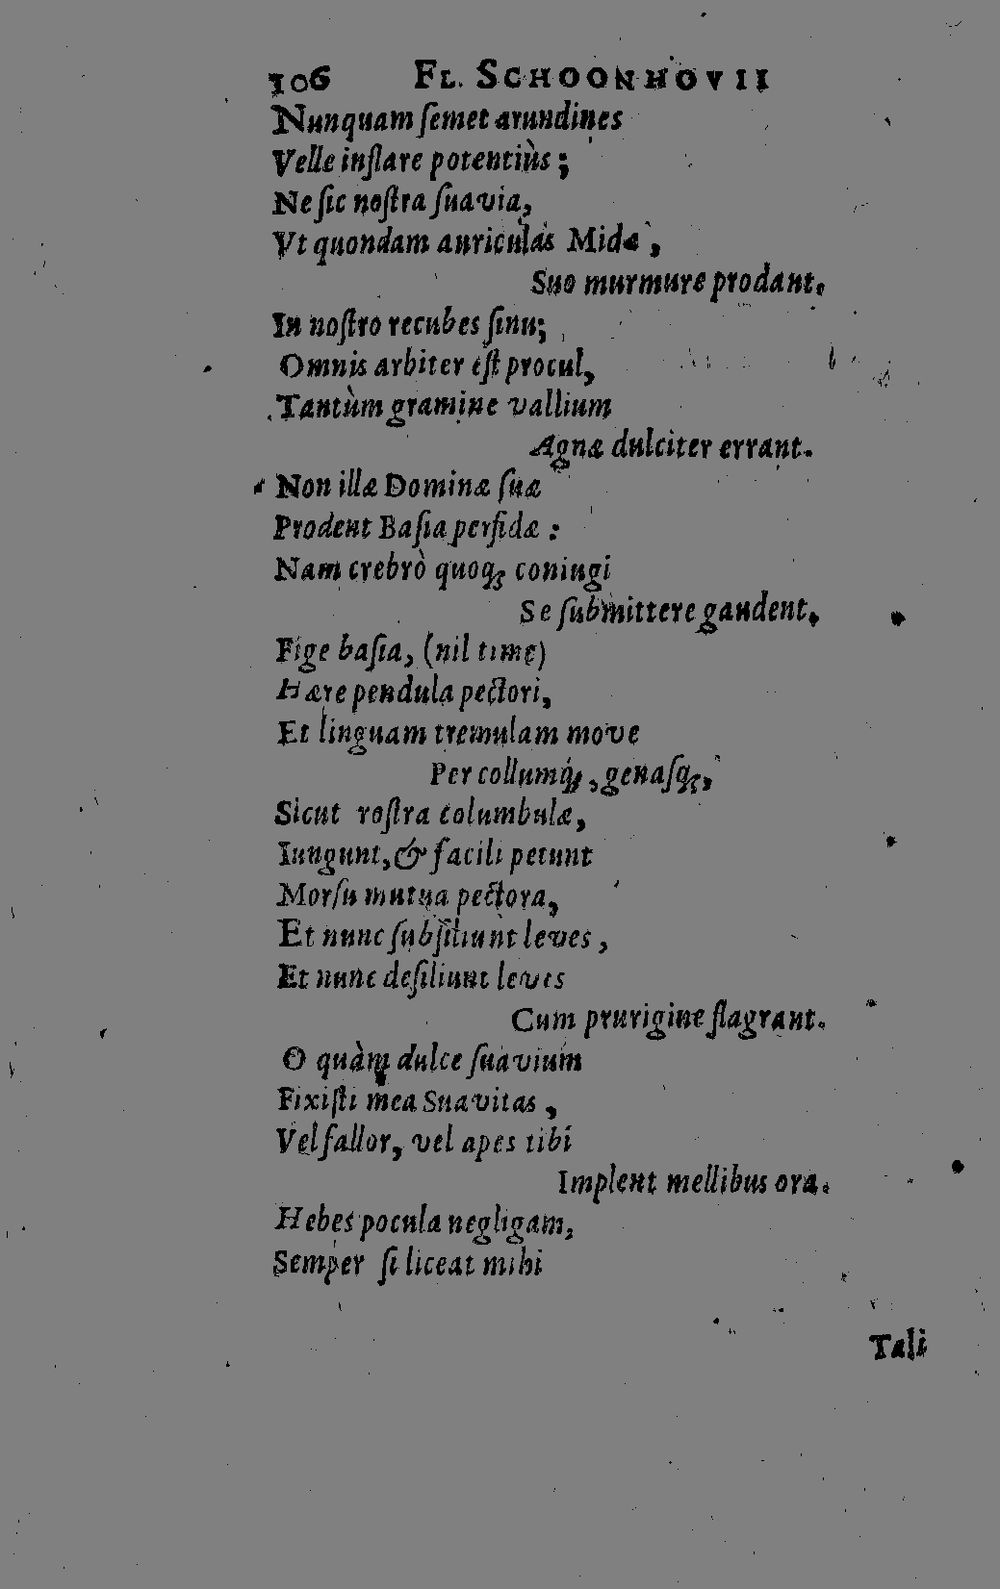 106 FL. SCHOONHOVII
Nunquam ſemet arundines
Velle inflare potentiùs;
Ne ſic noſtra ſuavia,
Vt quondam auriculas Midæ,
Suo murmure prodant.
In noſtro recubes ſinu;
Omnis arbiter eſt procul,
Tantùm gramine vallium
Agnæ dulciter errant.
Non illæ Dominæ ſuæ
Prodent Baſia perfidæ:
Nam crebrò quoq; coniugi
Se ſubmittere gaudent.
Fige baſia, (nil time)
Hære pendula pectori,
Et linguam tremulam move
Per collumq;, genaſq;,
Sicut roſtra columbulæ,
Iungunt, & facili petunt
Morſu mutua pectora,
Et nunc ſubſiliunt leves,
Et nunc deſiliunt leves
Cum prurigine flagrant.
O quàm dulce ſuavium
Fixiſti mea Suavitas,
Vel fallor, vel apes tibi
Implent mellibus ora.
Hebes pocula negligam,
Semper ſi liceat mihi
Tali